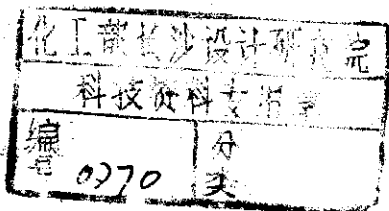 化工部长沙设计研究院
科技资料专用章
编号 0370 分类